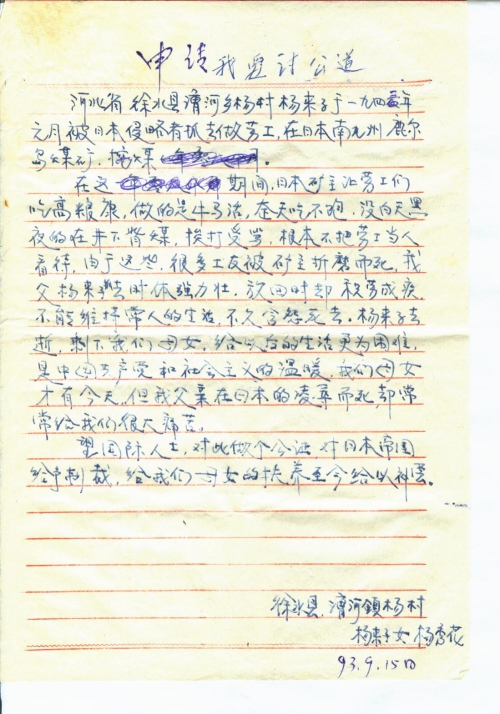 申请 我要讨公道
河北省徐水县漕河乡杨村杨来子于一九四三年
元月被日本侵略者抓去做劳工,在日本南九州鹿尔
岛煤矿,挖煤
在这 期间,日本矿主让劳工们
吃高粮康,做的是牛马活,奎天吃不饱,没白天黑
夜的在井下背煤,挨打受骂,根本不把劳工当人
看待,由于这些,很多工友被矿主折磨而死,我
父杨来子去时体强力壮,放回时却积劳成疾,
不能维持常人的生活,不久含怨死去。杨来子去
逝,剩下我们母女,给以后的生活更为困难,
是中国共产党和社会主义的温暖,我们母女
才有今天,但我父亲在日本的凌辱而死,却常
常给我们很大痛苦。
望国际人士,对此做个公证 对日本帝国
给予制裁,给我们母女的抚养至今给以补偿。
徐水县,漕河镇杨村
杨来子女 杨秀花
93.9.15日